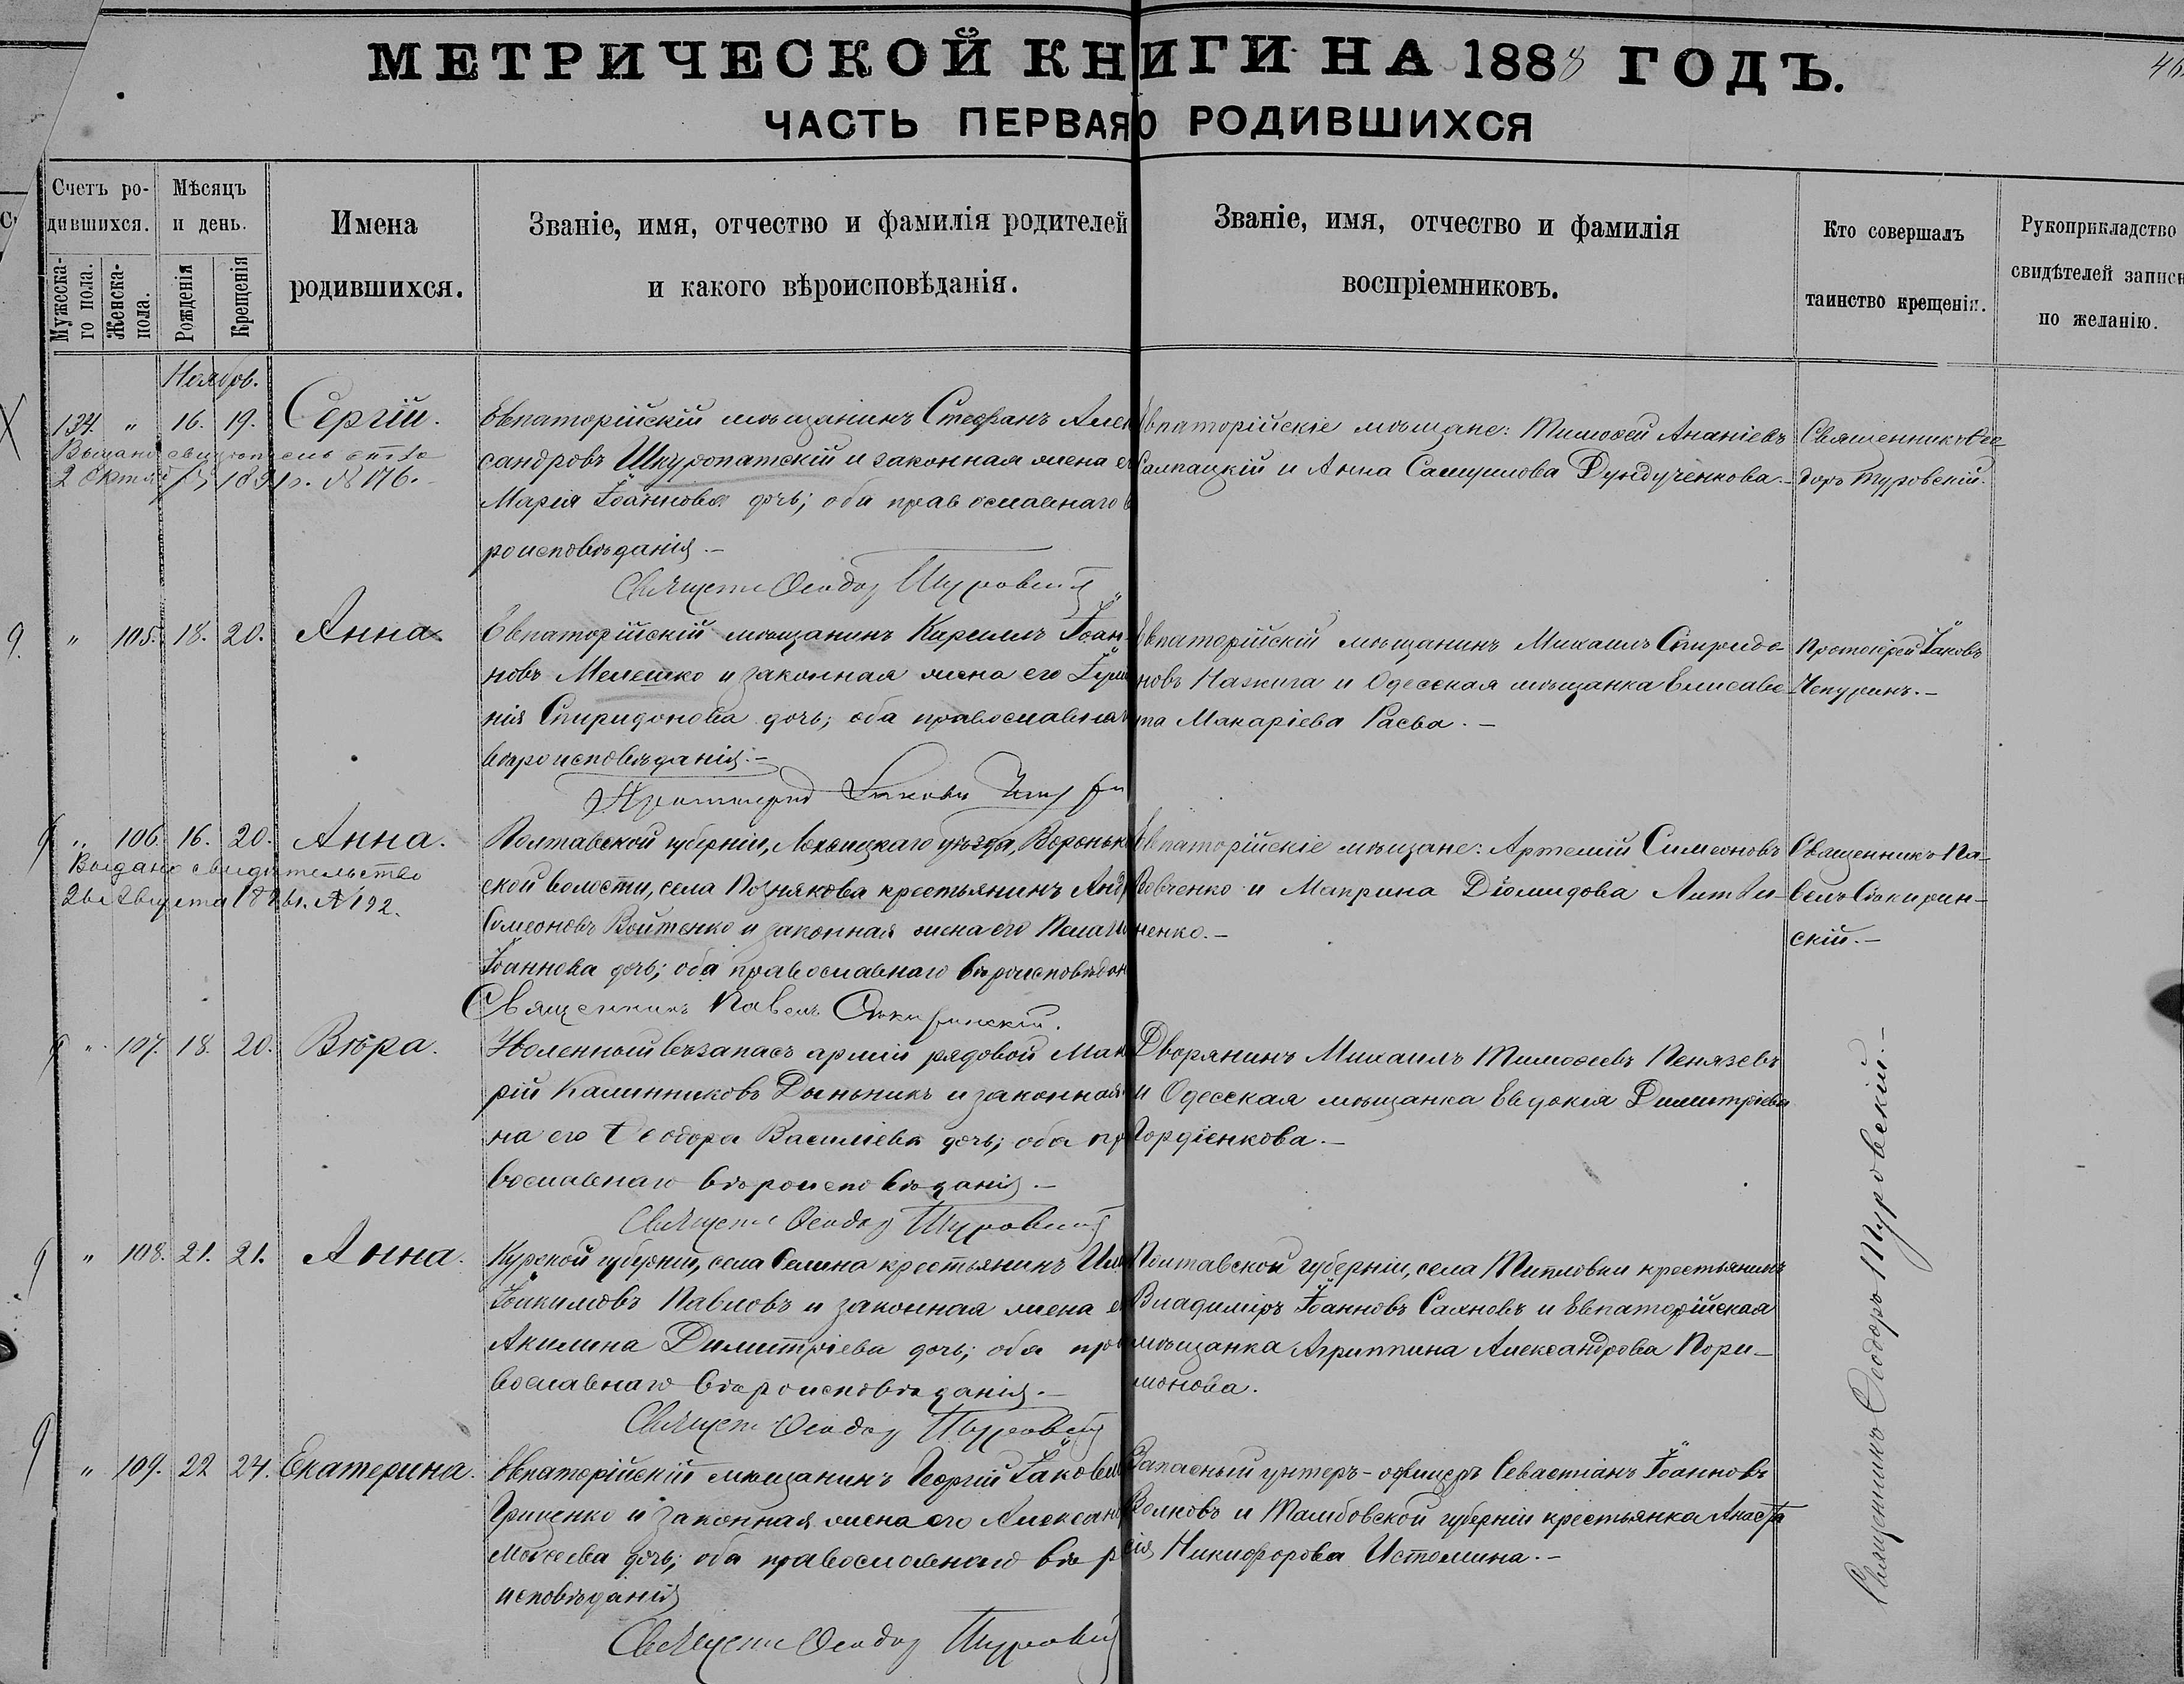 МЕТРИЧЕСКОЙ КНИГИ НА 1888 ГОДЪ.
46
ЧАСТЬ ПЕРВАЯ О РОДИВШИХСЯ
Счетъ ро-
дившихся.
Мужеска-
го пола.
Женска-
пола.
Мѣсяцъ
и день.
Рожденія
Крещенія
Имена
родившихся.
Званіе, имя, отчество и фамилія родителей
и какого вѣроисповѣданія.
Званіе, имя, отчество и фамилія
воспріемниковъ.
Кто совершалъ
таинство крещенія.
Рукоприкладство
свидѣтелей записи
по желанію.
Ноябрь.
134. " 16. 19. Сергій.
Выдано свидѣтельство
2 Октября 1891 г. № 176.
Евпаторійскій мѣщанинъ Стефанъ Алек
сандровъ Шкуропатскій и законная жена е
Марія Іоаннова дочь; оба православнаго в
роисповѣданія.-
Священ Ѳеодор Туровскій
Евпаторійскіе мѣщане: Тимоѳей Ананіевъ
Салпацкій и Анна Самуилова Дундученкова.-
Священникъ Ѳео
доръ Туровскій.
" 105. 18. 20. Анна
Евпаторійскій мѣщанинъ Кириллъ Іоан-
новъ Мелешко и законная жена его Іули
нія Спиридонова дочь; оба православна
вѣроисповѣданія.-
Протоіерей Іаковъ Чепурин
Евпаторійскій мѣщанинъ Михаилъ Спиридо-
новъ и Одесская мѣщанка Елисаве-
та Макаріева Раева.-
Протоіерей Іаковъ
Чепуринъ.-
" 106. 16. 20. Анна.
Выдано свидѣтельство
26 Августа 1896 г. № 192.
Полтавской губерніи, Лохвицкаго уѣзда, Вороньк
ской волости, села Познякова крестьянинъ Андр
Симеоновъ Войтенко и законная жена его Пелаги
Іоаннова дочь; оба православнаго вѣроисповѣдан
Священникъ Павелъ Сокиринскій.
Евпаторійскіе мѣщане: Артемій Симеоновъ
Вовченко и Матрина Діомидова Литви-
ненко.-
Священникъ Па-
велъ Сокирин-
скій.-
" 107. 18. 20. Вѣра.
Уволенный въ запасъ арміи рядовой Мак
рій Калинниковъ Дыньникъ и законная
на его Ѳеодора Василіева дочь; оба пр
вославнаго вѣроисповѣданія.-
Священ Ѳеодор Туровскій
Дворянинъ Михаилъ Тимоѳеевъ Пенязевъ
и Одесская мѣщанка Евдокія Димитріева
Гордіенкова.-
" 108. 21. 21. Анна.
Курской губерніи, села Селина крестьянинъ Ил
Іоакимовъ Павловъ и законная жена е
Акилина Димитріева дочь; оба пра
вославнаго вѣроисповѣданія.-
Священ Ѳеодор Туровскій
Полтавской губерніи, села крестьянинъ
Владиміръ Іоанновъ Саяновъ и Евпаторійская
мѣщанка Агриппина Александрова Пори-
монова.
" 109. 22 24. Екатерина.
Евпаторійскій мѣщанинъ Георгій Іаковле
Гриценко и законная жена его Александ
Моисеева дочь; оба православнаго вѣро
исповѣданія
Священ Ѳеодор Туровскій
Запасный унтеръ-офицеръ Севастіанъ Іоанновъ
Волковъ и Тамбовской губерніи крестьянка Анаста
сія Никифорова Истомина.-
Священникъ Ѳеодоръ Туровскій.-